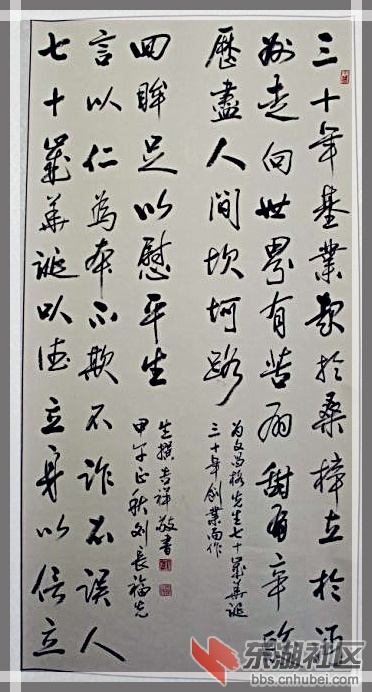 三十年基業於桑梓立於
州走向世界有苦有甜有辛酸
歷盡人間坎坷路
为文先生七十歲華誕
三十年創業而作
七十歲華誕以德立身以信立
言以仁為本不欺不詐不誤人
回眸足以慰平生
甲午正秋刘長福先
生撰吉祥敬書
东湖社区
bbs.cnhubei.com